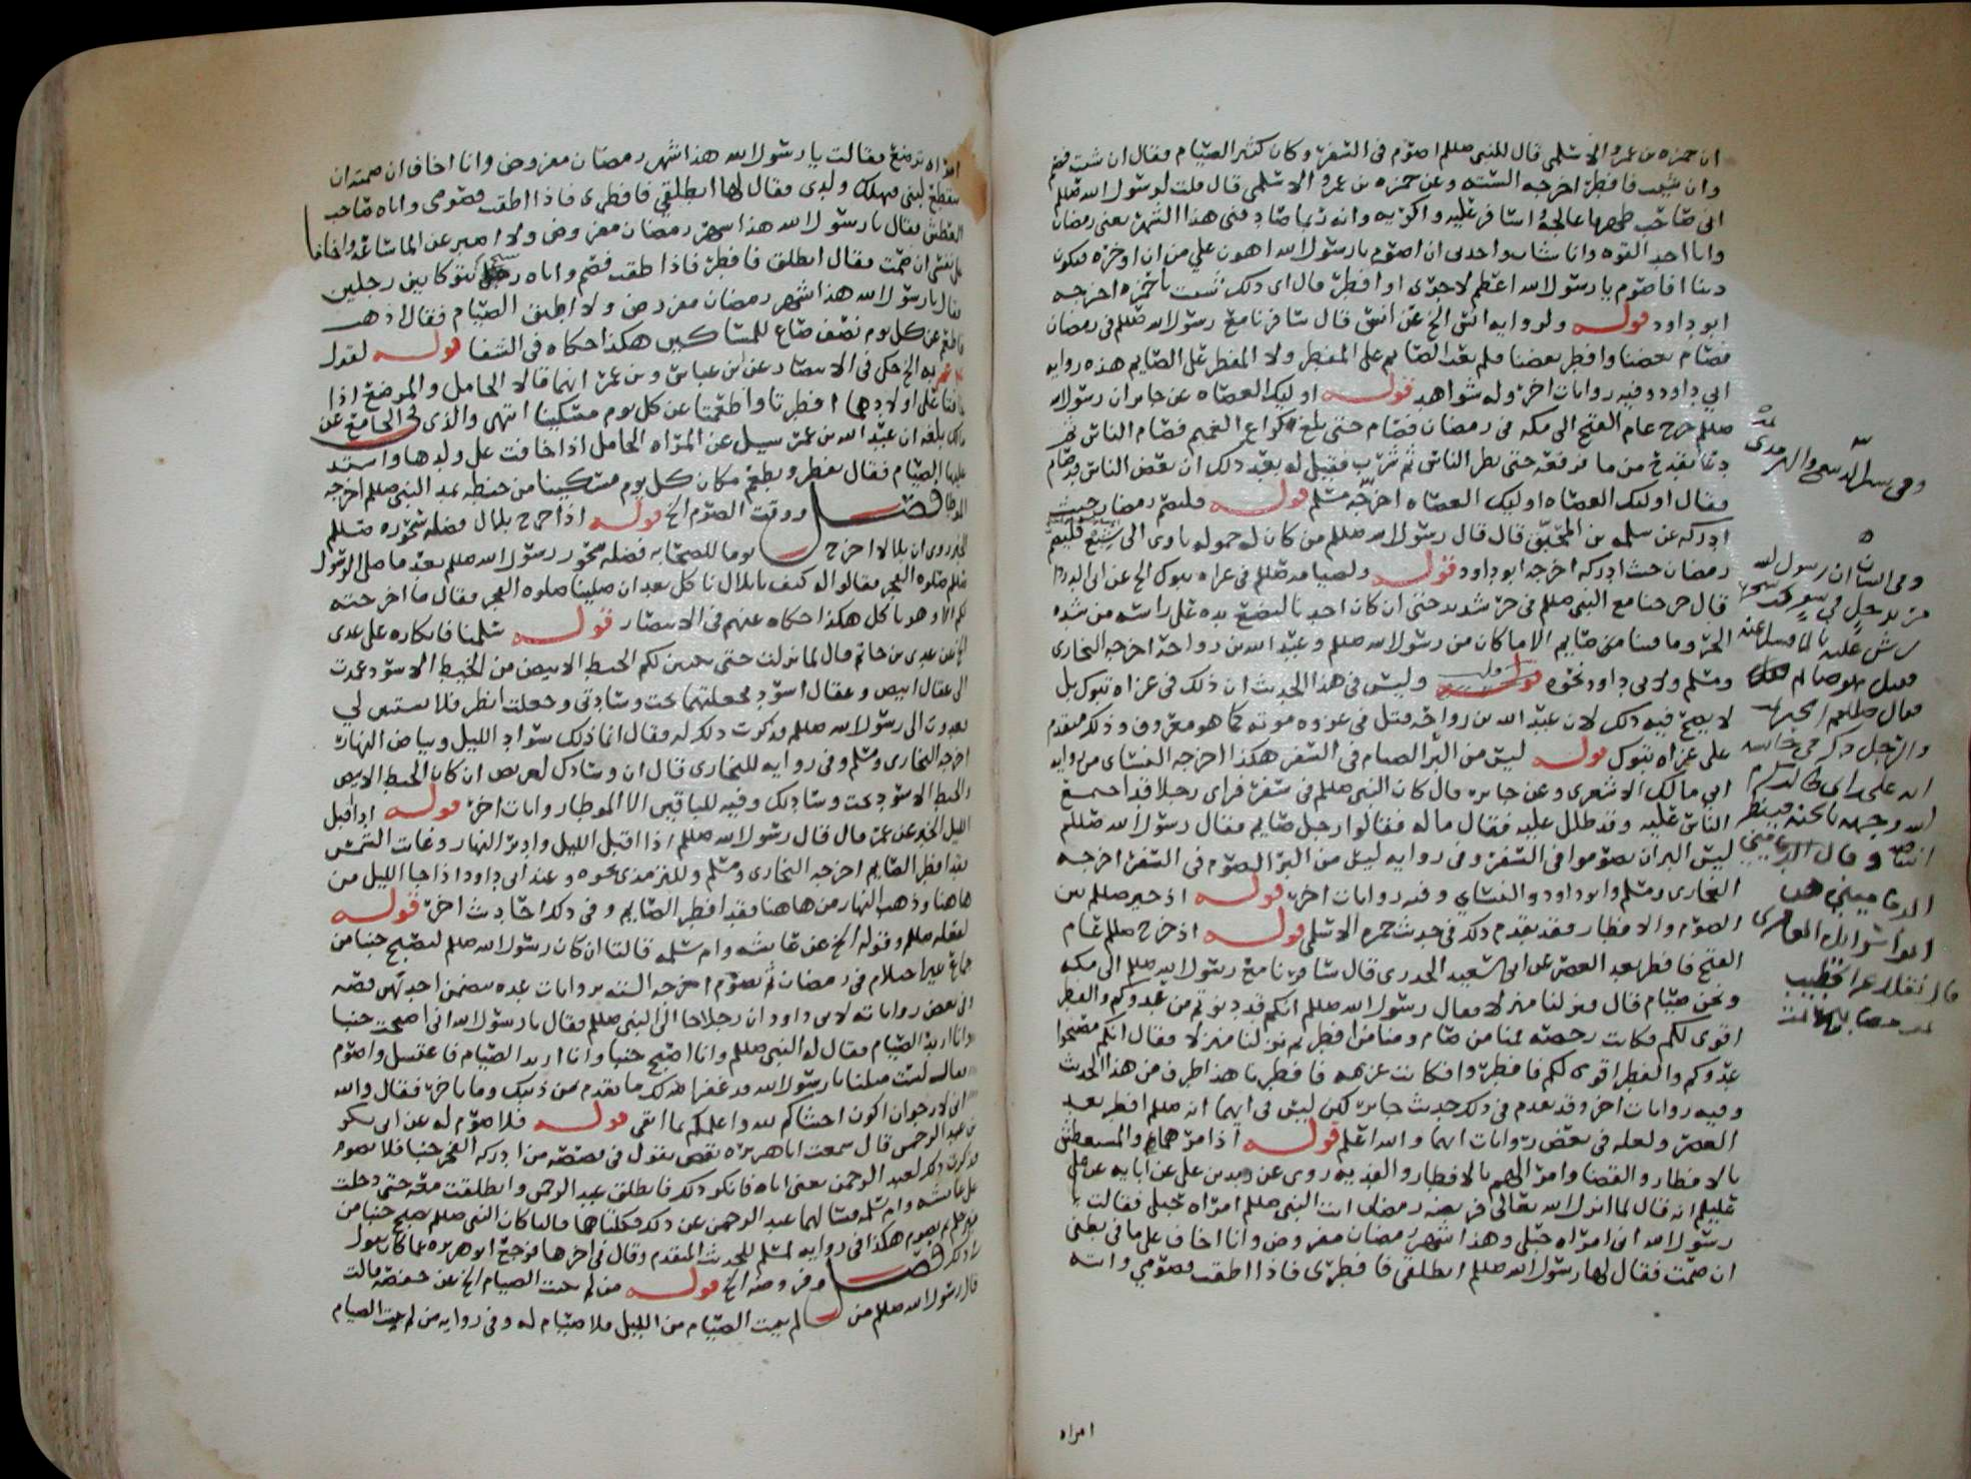 ان حمزه بن عمرو الاسلمي قال للنبي صللم اصوم في السفر وكان كثير الصيام فقال ان شئت فصم
وان شيت فافطر اخرجه الستة وعن حمزه بن عمرو الاسلمي قال قلت لرسول الله صللم
اني صاحب ظهر اعالجه اسافر عليه واكريه وانه ربما صادفني هذا الشهر يعني رمضان
وانا اجد القوه وانا شاب واجدني ان اصوم يا رسول الله اهون علي من ان اوخره فيكون
دينا افاصوم يا رسول الله اعظم لاجري او افطر قال اي ذلك شئت يا حمزه اخرجه
ابو داود قوله ولروايه انس الخ عن انس قال سافرنا مع رسول الله صللم في رمضان
فصام بعضنا وافطر بعضنا فلم يعب الصايم على المفطر ولا المفطر على الصايم هذه روايه
ابي داود وفيه روايات اخر وله شواهد قوله اوليك العصاه عن جابر ان رسول الله
صللم خرج عام الفتح الى مكه في رمضان فصام حتى بلغ كراع الغميم فصام الناس ثم
دعا بقدح من ما فرفعه حتى نظر الناس ثم شرب فقيل له بعد ذلك ان بعض الناس قد صام
فقال اوليك العصاه اوليك العصاه اخرجه مسلم قوله فليصم رمضان حيث
ادركه عن سلمه بن المحبق قال قال رسول الله صللم من كان له حموله ياوي الى شبع فليصم
رمضان حيث ادركه اخرجه ابو داود قوله ولصيامه صللم في غزاه تبوك الخ عن ابي الدردا
قال خرجنا مع النبي صللم في حر شديد حتى ان كان احدنا ليضع يده على راسه من شده
الحر وما فينا من صايم الا ما كان من رسول الله صللم وعبد الله بن رواحه اخرجه البخاري
ومسلم ولابي داود نحوه قوله وليس في هذا الحديث ان ذلك في غزاه تبوك بل
لا يصح فيه ذلك لان عبد الله بن رواحه قتل في غزوه موته كما هو معروف وذلك متقدم
على غزاه تبوك قوله ليس من البر الصيام في السفر هكذا اخرجه النساي من روايه
ابي مالك الاشعري وعن جابر قال كان النبي صللم في سفر فراى رجلا قد اجتمع
الناس عليه وقد ظلل عليه فقال ما له فقالوا رجل صايم فقال رسول الله صللم
ليس البر ان تصوموا في السفر وفي روايه ليس من البر الصوم في السفر اخرجه
البخاري ومسلم وابو داود والنساي وفيه روايات اخر قوله اذ خير صللم بين
الصوم والافطار فقد تقدم ذلك في حديث حمزه الاسلمي قوله اذ خرج صللم عام
الفتح فافطر بعد العصر عن ابي سعيد الخدري قال سافرنا مع رسول الله صللم الى مكه
ونحن صيام قال فنزلنا منزلا فقال رسول الله صللم انكم قد دنوتم من عدوكم والفطر
اقوى لكم فكانت رخصه فمنا من صام ومنا من افطر ثم نزلنا منزلا فقال انكم مصبحوا
عدوكم والفطر اقوى لكم فافطروا فكانت عزمه فافطرنا هذا طرف من هذا الحديث
وفيه روايات اخر وقد تقدم في ذلك حديث جابر لكن ليس في ايهما انه صللم افطر بعد
العصر ولعله في بعض روايات ايهما والله اعلم قوله اذ امرهما والمستعطش
بالافطار والقضا وامر الهم بالافطار والفديه روي عن زيد بن علي عن ابايه عن علي
عليلم انه قال لما انزل الله تعالى فريضه رمضان اتت النبي صللم امراه حبلى فقالت يا
رسول الله اني امراه حبلى وهذا شهر رمضان مفروض وانا اخاف على ما في بطني
ان صمت فقال لها رسول الله صللم انطلقي فافطري فاذا اطقت فصومي واتته
امراه
وفي السان ان رسول الله
مر برجل في سفر
يرش عليه بالما فسال عنه
فقيل هو صايم
امراه ترضع فقالت يا رسول الله هذا شهر رمضان مفروض وانا اخاف ان صمته ان
ينقطع لبني فيهلك ولدي فقال لها انطلقي فافطري فاذا اطقت فصومي واتاه صاحب
العطش فقال يا رسول الله هذا شهر رمضان مفروض ولا اصبر عن الما ساعه واخاف
على نفسي ان صمت فقال انطلق فافطر فاذا اطقت فصم واتاه شيخ يتوكا بين رجلين
فقال يا رسول الله هذا شهر رمضان مفروض ولا اطيق الصيام فقال اذهب
فاطعم عن كل يوم نصف صاع للمساكين هكذا حكاه في الشفا قوله لقول
الخ حكى في الانتصار عن بن عباس وبن عمر انهما قالا الحامل والمرضع اذا
خافتا على اولادهما افطرتا واطعمتا عن كل يوم مسكينا انتهى والذي في الجامع عن
مالك بلغه ان عبد الله بن عمر سيل عن المراه الحامل اذا خافت على ولدها واشتد
عليها الصيام فقال تفطر وتطعم مكان كل يوم مسكينا من حنطه بمد النبي صللم اخرجه
الموطا فصل ووقت الصوم الخ قوله اذ اخرج بلال فضله سحوره صللم
الخبر روي ان بلالا اخرج يوما للصحابه فضله سحور رسول الله صللم بعد ما صلى الرسول
صللم صلوه الفجر فقالوا له كيف يا بلال ناكل بعد ان صلينا صلوه الفجر فقال ما اخرجته
لكم الا وهو ياكل هكذا حكاه عنهم في الانتصار قوله سلمنا فانكاره على عدي
الخ عن عدي بن حاتم قال لما نزلت حتى يتبين لكم الخيط الابيض من الخيط الاسود عمدت
الى عقال ابيض وعقال اسود فجعلتهما تحت وسادتي وجعلت انظر فلا يستبين لي
فغدوت الى رسول الله صللم فذكرت ذلك له فقال انما ذلك سواد الليل وبياض النهار
اخرجه البخاري ومسلم وفي روايه للبخاري قال ان وسادك لعريض ان كان الخيط الابيض
والخيط الاسود تحت وسادتك وفيه للباقين الا الموطا روايات اخر قوله اذا اقبل
الليل الخبر عن عمر قال قال رسول الله صللم اذا اقبل الليل وادبر النهار وغابت الشمس
فقد افطر الصايم اخرجه البخاري ومسلم وللترمذي نحوه وعند ابي داود اذا جا الليل من
هاهنا وذهب النهار من هاهنا فقد افطر الصايم وفي ذلك احاديث اخر قوله
لفعله صللم وقوله الخ عن عايشه وام سلمه قالتا ان كان رسول الله صللم ليصبح جنبا من
جماع غير احتلام في رمضان ثم يصوم اخرجه السته بروايات عده
بعض رواياته لابي داود ان رجلا جا الى النبي صللم فقال يا رسول الله اني اصبحت جنبا
وانا اريد الصيام فقال له النبي صللم وانا اصبح جنبا وانا اريد الصيام فاغتسل واصوم
فقال لست مثلنا يا رسول الله قد غفر الله لك ما تقدم من ذنبك وما تاخر فقال والله
اني لارجو ان اكون اخشاكم لله واعلمكم بما اتقي قوله فلا صوم له عن ابي بكر
بن عبد الرحمن قال سمعت ابا هريره يقص يقول في قصصه من ادركه الفجر جنبا فلا يصوم
فذكرت ذلك لعبد الرحمن يعني اباه فانكر ذلك فانطلق عبد الرحمن وانطلقت معه حتى دخلت
على عايشه وام سلمه فسالهما عبد الرحمن عن ذلك فكلتاهما قالتا كان النبي صللم يصبح جنبا من
غير حلم ثم يصوم هكذا في روايه لمسلم للحديث المتقدم وقال في اخرها فرجع ابو هريره عما كان يقول
في ذلك فصل وفروضه الخ قوله من لم يبت الصيام الخ عن حفصه قالت
قال رسول الله صللم من لم يبيت الصيام من الليل فلا صيام له وفي روايه من لم يبت الصيام